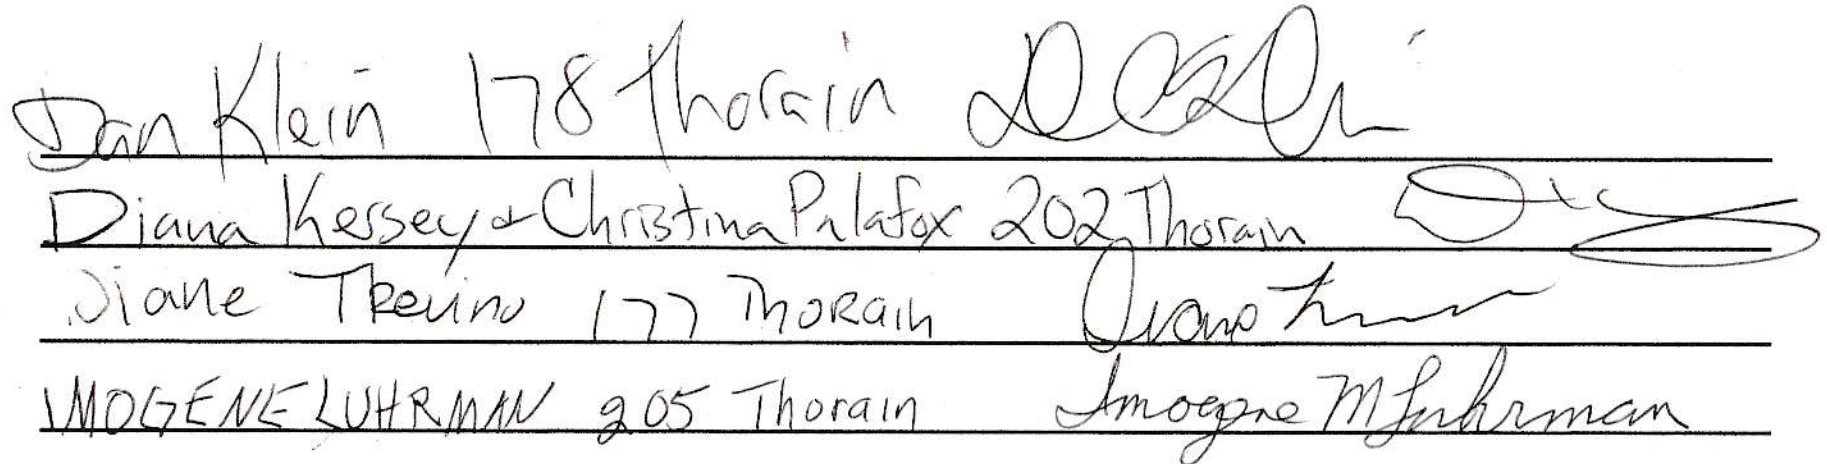 Dan Klein 178 Thorain
Diana Kersey & Christina Palafox 202 Thorain
Diane Trevino 177 Thorain Diane
IMOGENE LUHRMAN 205 Thorain Imogene M Luhrman